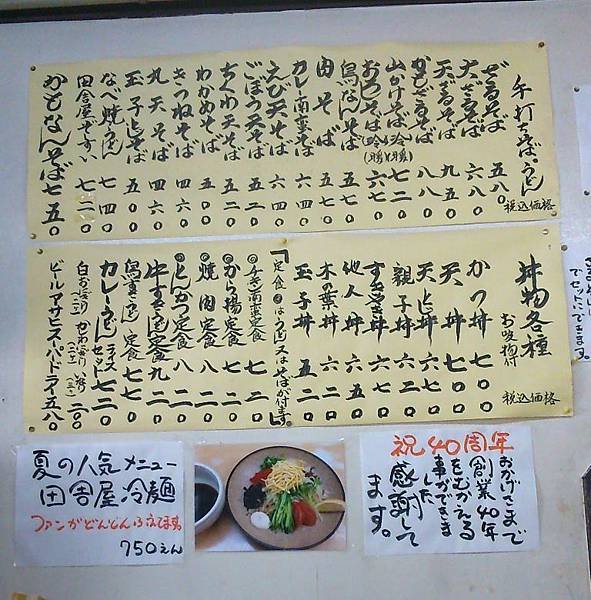 手打ちそば・うどん
税込価格
ざるそば 五八〇
大ざるそば 六八〇
天ざるそば 九五〇
かもざるそば 八八〇
山かけそば(冷)(暖) 七二〇
おろしそば(冷)(暖) 六七〇
鳥なんそば 五七〇
肉そば 五七〇
カレー南蛮そば 六四〇
えび天そば 六四〇
ごぼう天そば 五二〇
ちくわ天そば 五二〇
わかめそば 五二〇
きつねそば 四六〇
丸天そば 四六〇
玉子とじそば 五二〇
なべ焼うどん 七二〇
田舎屋そすい 七二〇
かもなんそば 七五〇
丼物各種
お吸物付
税込価格
かつ丼 七七〇
天丼 七〇〇
天とじ丼 六七〇
親子丼 六二〇
すきやき丼 六七〇
他人丼 六五〇
木の葉丼 五二〇
玉子丼 五二〇
「定食◎はうどん又はそばが付ます」
◎チキン南蛮定食 七二〇
◎から揚定食 七二〇
◎焼肉定食 八二〇
◎とんかつ定食 八二〇
牛すきうどん定食 九二〇
鳥すきうどん定食 七五〇
カレーうどんライスセット 七二〇
白おにぎり(二コ) かしわおにぎり(二コ) いなり(三コ) 二〇〇
ビールアサヒスーパードライ 五八〇
夏の人気メニュー
田舎屋冷麺
ファンがどんどんふえてます
750えん
祝40周年
おかげさまで
創業40年
をむかえる
事ができま
した
感謝して
ます。
でセットにできます。